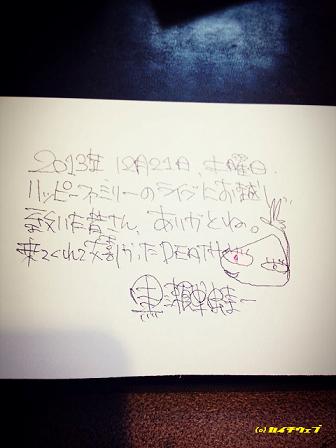 2013年 12月21日、土曜日、
ハッピーファミリーのライブにお越し
頂いた皆さん、ありがとね。
来てくれて嬉しかったDEATH
黒瀬
(c)ルイチウェブ